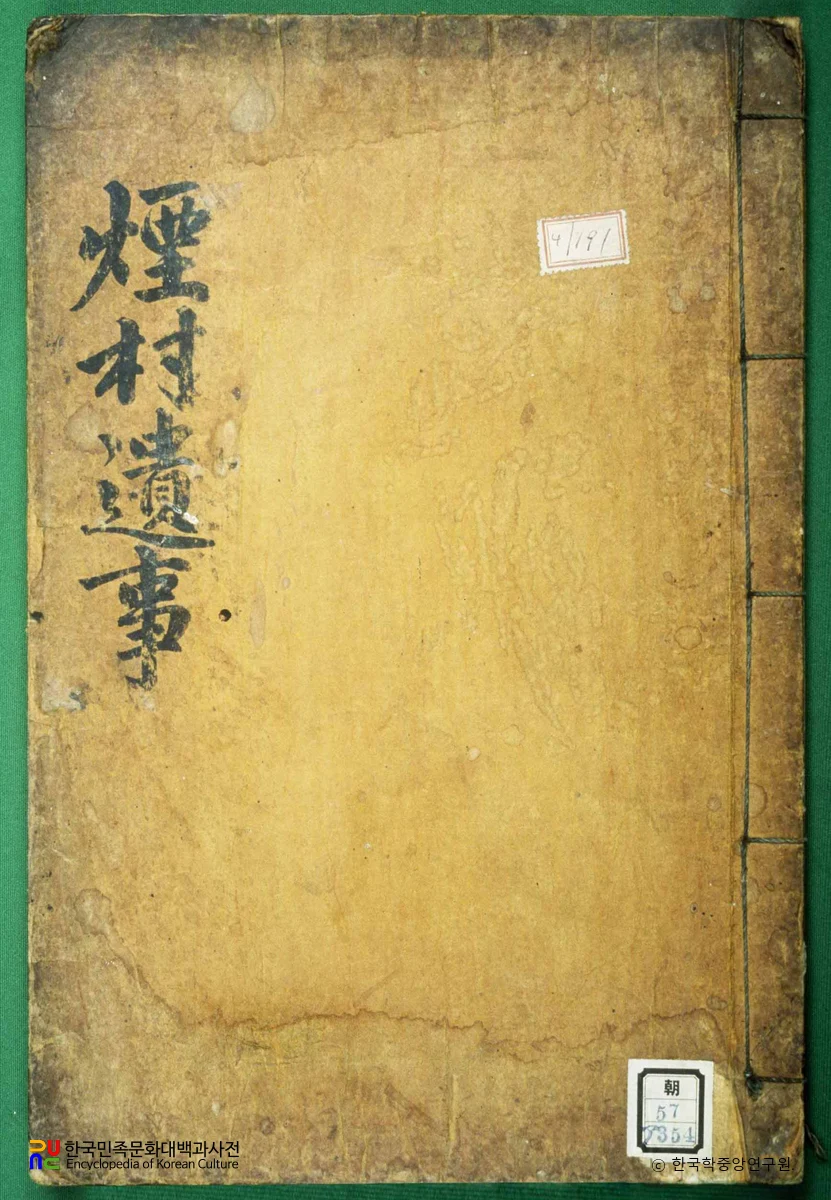 煙村遺事
4/191
朝
57
7354
한국민족문화대백과사전
Encyclopedia of Korean Culture
© 한국학중앙연구원